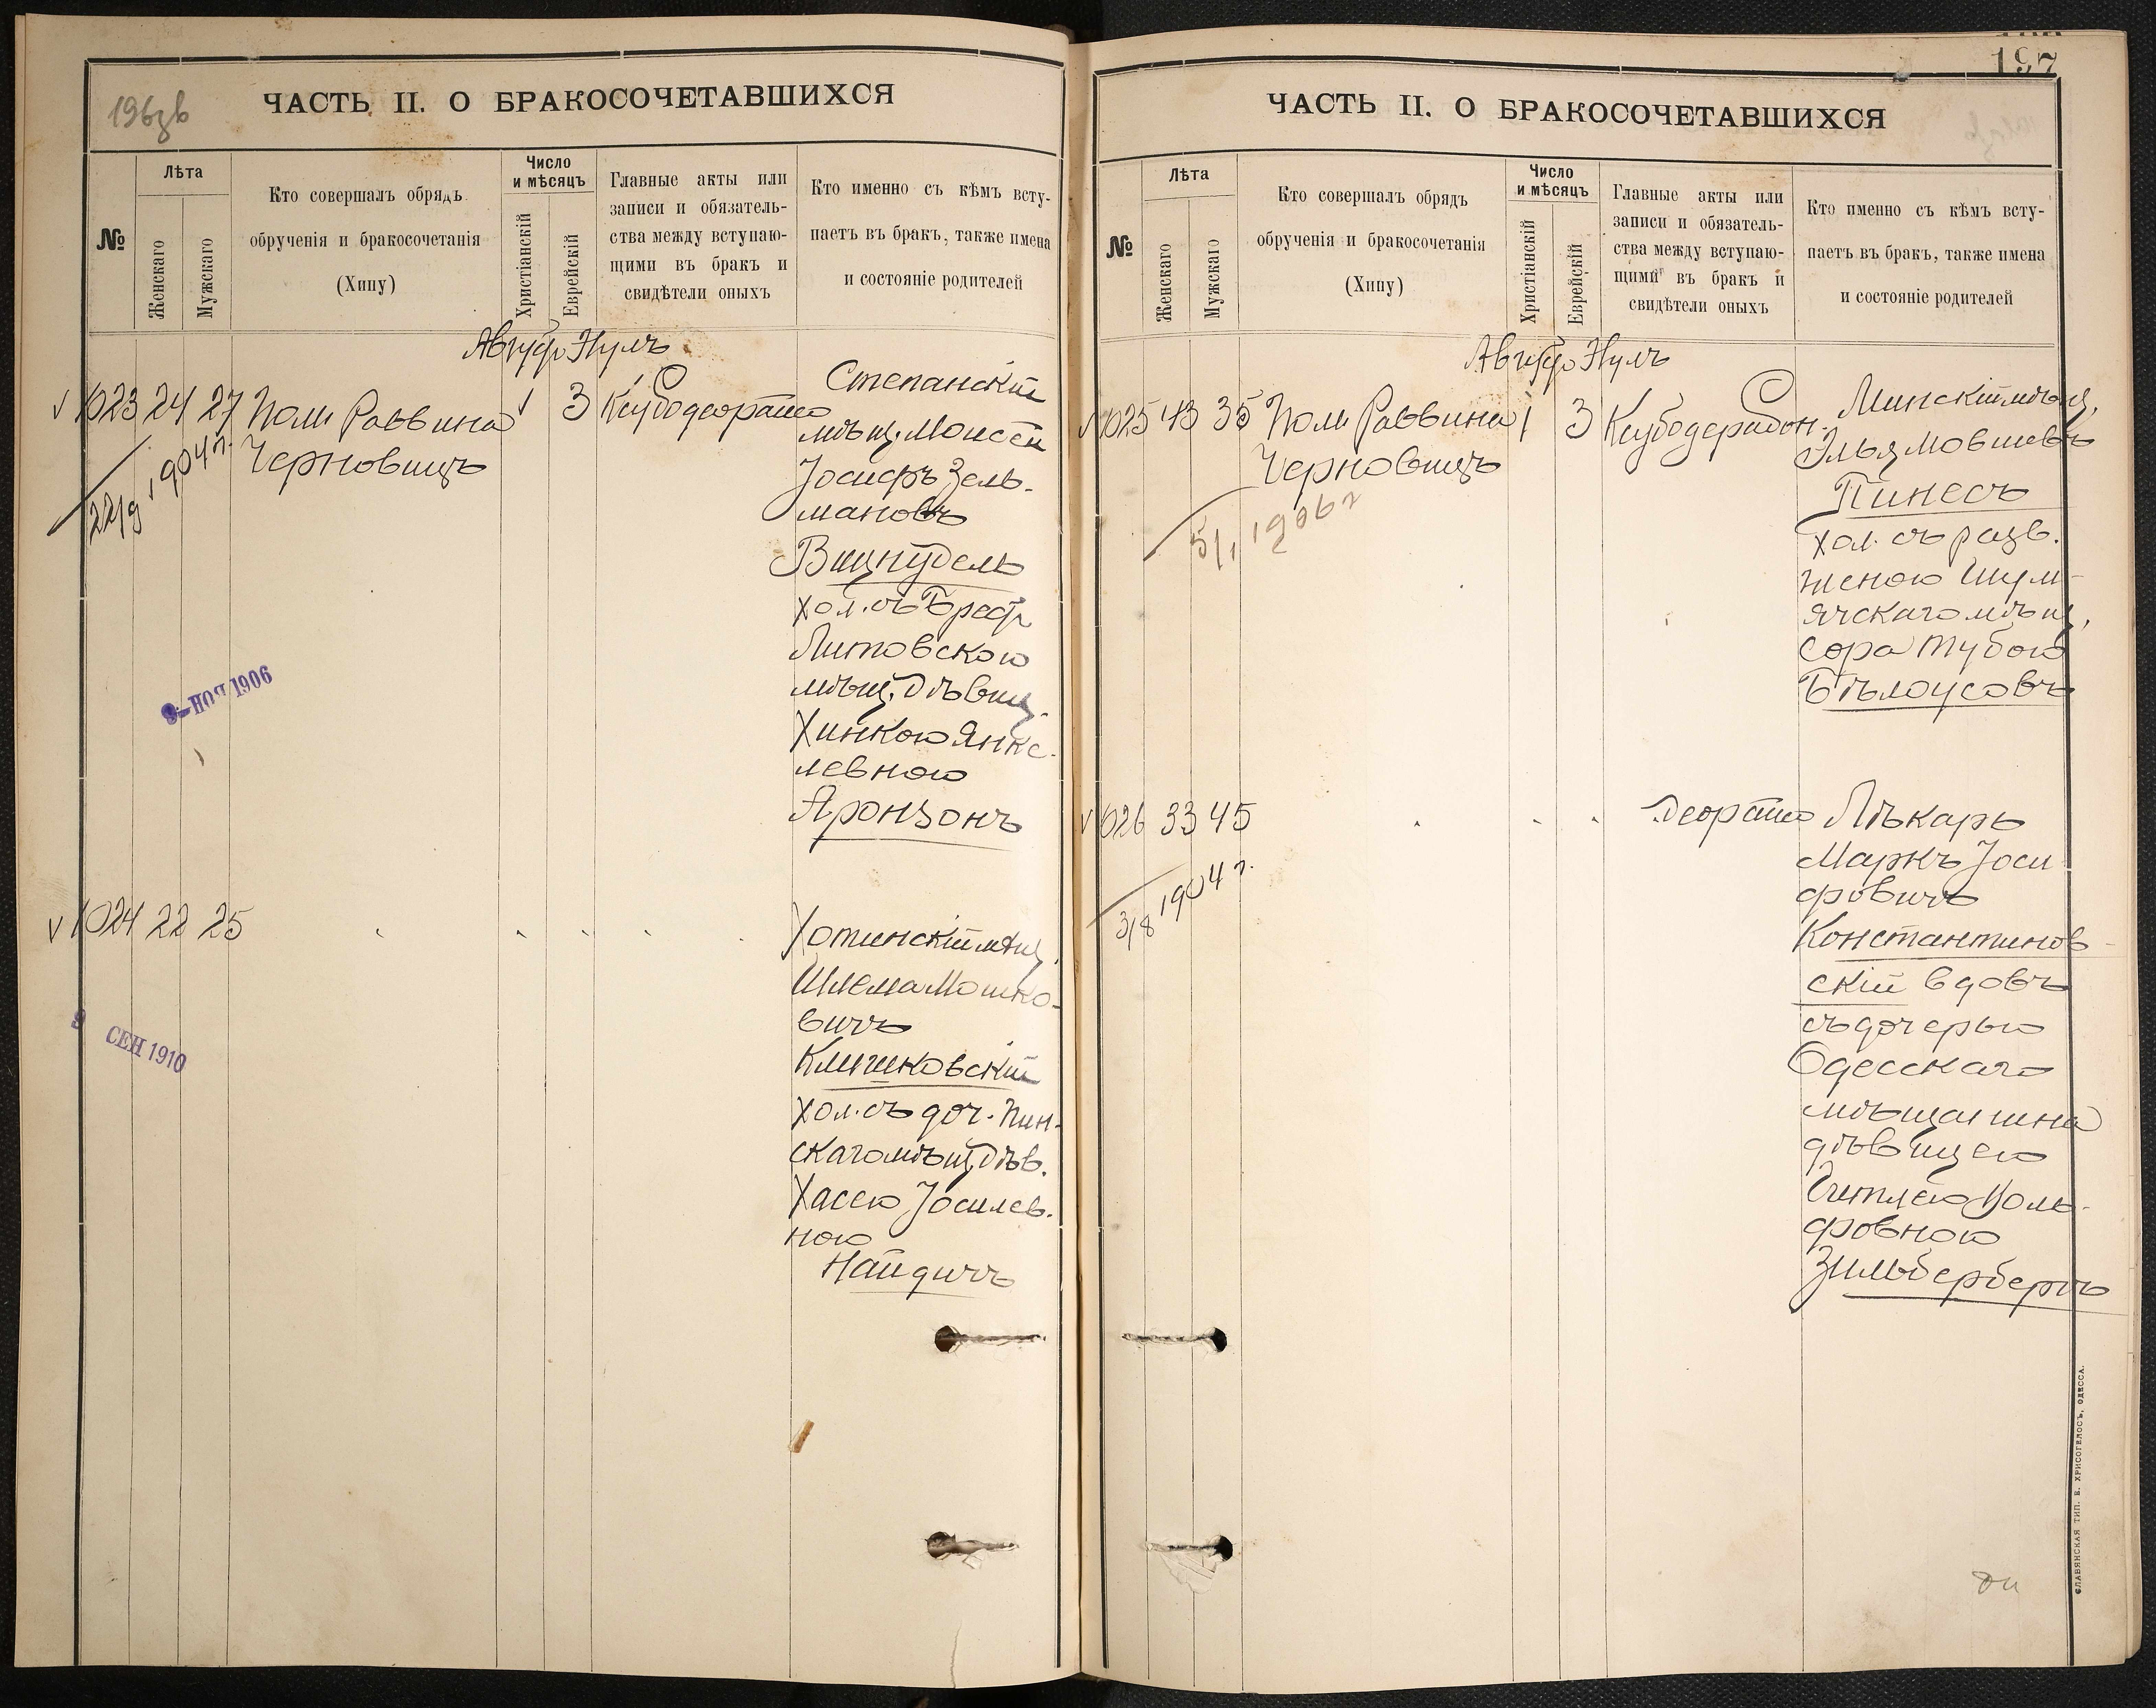 196зв
ЧАСТЬ II. О БРАКОСОЧЕТАВШИХСЯ
№
Лѣта
Женскаго
Мужскаго
Кто совершалъ обрядъ
обрученія и бракосочетанія
(Хипу)
Число
и мѣсяцъ
Христіанскій
Еврейскій
Главные акты или
записи и обязатель-
ства между вступаю-
щими въ бракъ и
свидѣтели оныхъ
Кто именно съ кѣмъ всту-
паетъ въ бракъ, также имена
и состояніе родителей
1023 24 27 Пом. Раввина 1 3
Черновицъ
22/9 1904 г.
Степанскій
мѣщ. Моисей
Іосифъ Зель-
мановъ
Вицнудель
хол. съ Брест
Литовскою
мѣщ. Дѣвиц.
Хинкою Янке-
левною
Аронзонъ
8-НОЯ 1906
1024 22 25
Хотинскій мѣщ.
Шлема Мошко-
вичъ
Клишковскій
хол. съ доч. Пин-
скаго мѣщ. Дѣв.
Хасею Іосилев-
ною
Найдичъ
9 СЕН 1910
197
ЧАСТЬ II. О БРАКОСОЧЕТАВШИХСЯ
№
Лѣта
Женскаго
Мужскаго
Кто совершалъ обрядъ
обрученія и бракосочетанія
(Хипу)
Число
и мѣсяцъ
Христіанскій
Еврейскій
Главные акты или
записи и обязатель-
ства между вступаю-
щими въ бракъ и
свидѣтели оныхъ
Кто именно съ кѣмъ всту-
паетъ въ бракъ, также имена
и состояніе родителей
1025 43 35 Пом. Раввина 1 3
Черновицъ
5/1 1906 г
Минскій мѣщ.
Элья Мовшевъ
Пинесъ
хол. съ разв.
женою Шум-
ячскаго мѣщ.
Сора Тубою
Бѣлоусовъ
1026 33 45
3/8 1904 г.
Лѣкарь
Маркъ Іоси
фовичъ
Константинов-
скій вдовъ
съ дочерью
Одесскаго
мѣщанина
дѣвицею
Гитлею Воль-
фовною
Зильберберъ
СЛАВЯНСКАЯ ТИП. Е. ХРИСОГЕЛОСЪ, ОДЕССА.